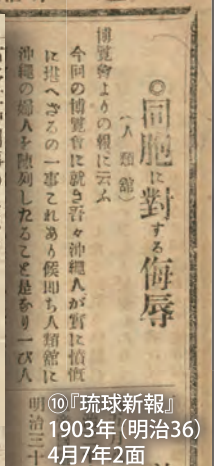 ◎同胞に對する侮辱
（人類館）
博覧會よりの報に云ふ
今回の博覽會に就き吾々沖縄人が實に憤慨
に堪へざるの一事これあり候即ち人類舘に
沖縄の婦人を陳列したること是なり一び人
明治三十
⑩『琉球新報』
1903年（明治36）
4月7年2面